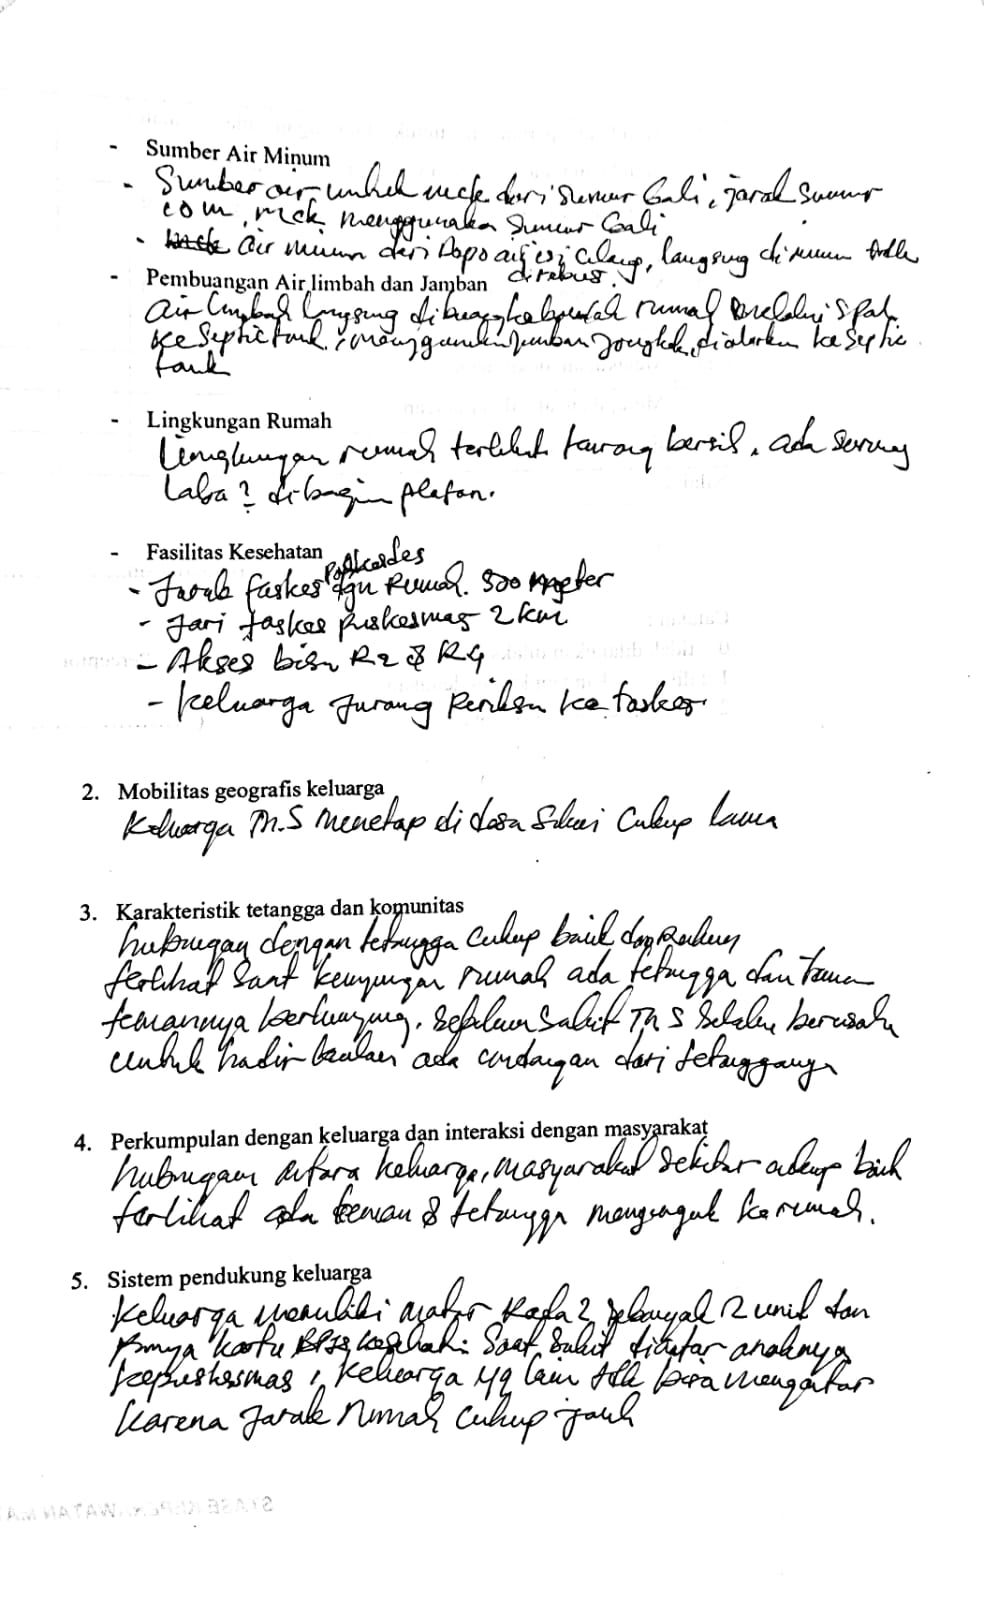 - Sumber Air Minum
- Sumber air untuk mck dari Sumur Gali, jarak Sumur
10 m, mck menggunakan Sumur Gali
- air minum dari Popo air isi ulang, langsung diminum tidak
direbus.
- Pembuangan Air limbah dan Jamban
air limbah langsung dibuang kebawah rumah melalui Spal
ke Septic tank, menggunakan jamban jongkok, dialirkan ke Septic
tank
- Lingkungan Rumah
Lingkungan rumah terlihat kurang bersih, ada sarang
laba2 dibagian plafon.
- Fasilitas Kesehatan
- Jarak faskes Poskesdes dgn Rumah 500 meter
- Jari faskes Puskesmas 2 km
- Akses bisa R2 & R4
- Keluarga Jarang Periksa ke faskes
2. Mobilitas geografis keluarga
Keluarga Tn.S Menetap di desa Cukup lama
3. Karakteristik tetangga dan komunitas
hubungan dengan tetangga Cukup baik dan Rukun
terlihat Saat kunjungan rumah ada tetangga dan teman
temannya berkunjung. Sebelum Sakit Tn S Selalu berusaha
untuk hadir ada undangan dari tetangganya
4. Perkumpulan dengan keluarga dan interaksi dengan masyarakat
hubungan antara keluarga, masyarakat sekitar cukup baik
terlihat ada teman & tetangga mengunguk ke rumah.
5. Sistem pendukung keluarga
Keluarga memiliki motor Roda 2 sebanyak 2 unit dan
punya kartu BPJS kesehatan. Saat Sakit diantar anaknya
kepuskesmas, keluarga yg lain tdk bisa mengantar
Karena Jarak Rumah Cukup jauh